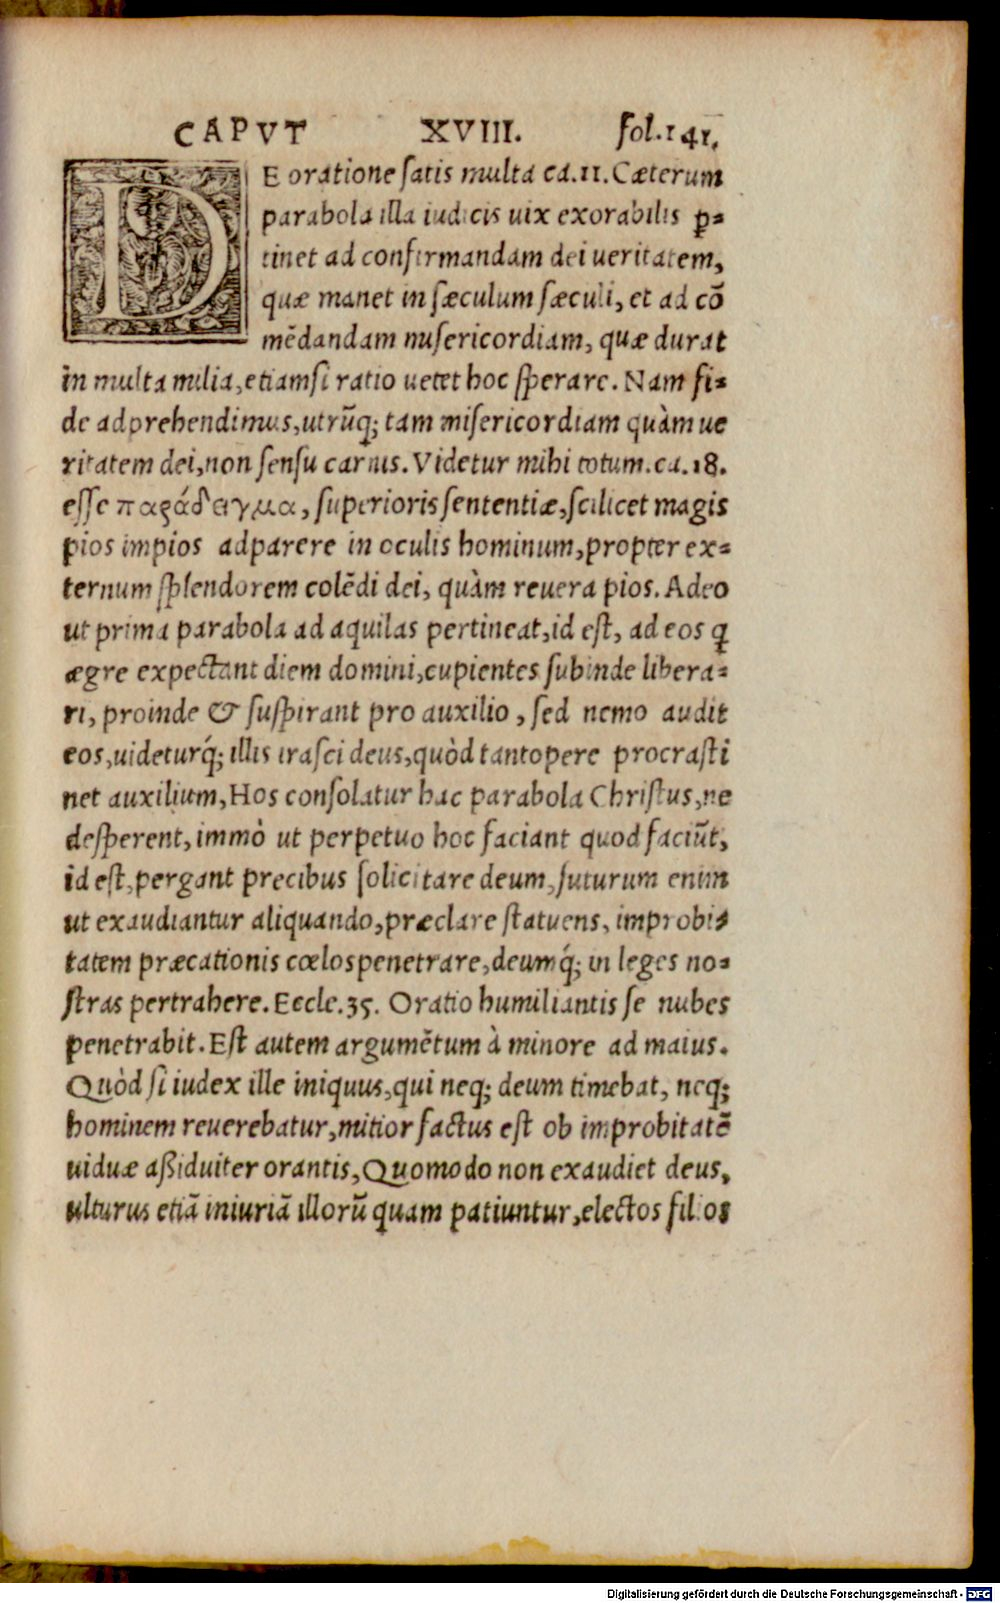 CAPVT XVIII. fol. 141.
DE oratione satis multa ca. 11. Cæterum
parabola illa iudicis uix exorabilis ꝑ-
tinet ad confirmandam dei ueritatem,
quæ manet in sæculum sæculi, et ad cō
mēdandam misericordiam, quæ durat
in multa milia, etiamsi ratio uetet hoc sperare. Nam fi-
de adprehendimus, utrūq; tam misericordiam quàm ue
ritatem dei, non sensu carnis. Videtur mihi totum. ca. 18.
esse παράδειγμα, superioris sententiæ, scilicet magis
pios impios adparere in oculis hominum, propter ex-
ternum splendorem colēdi dei, quàm reuera pios. Adeo
ut prima parabola ad aquilas pertineat, id est, ad eos ꝗ
ægre expectant diem domini, cupientes subinde libera-
ri, proinde & suspirant pro auxilio, sed nemo audit
eos, uideturq́; illis irasci deus, quòd tantopere procrasti
net auxilium, Hos consolatur hac parabola Christus, ne
desperent, immò ut perpetuo hoc faciant quod faciūt,
id est, pergant precibus solicitare deum, futurum enim
ut exaudiantur aliquando, præclare statuens, improbi-
tatem præcationis cœlos penetrare, deumq́; in leges no-
stras pertrahere. Eccle. 35. Oratio humiliantis se nubes
penetrabit. Est autem argumētum à minore ad maius.
Quòd si iudex ille iniquus, qui neq; deum timebat, neq;
hominem reuerebatur, mitior factus est ob improbitatē
uiduæ aßiduiter orantis, Quomodo non exaudiet deus,
ulturus etiā iniuriā illorū quam patiuntur, electos filios
Digitalisierung gefördert durch die Deutsche Forschungsgemeinschaft - DFG